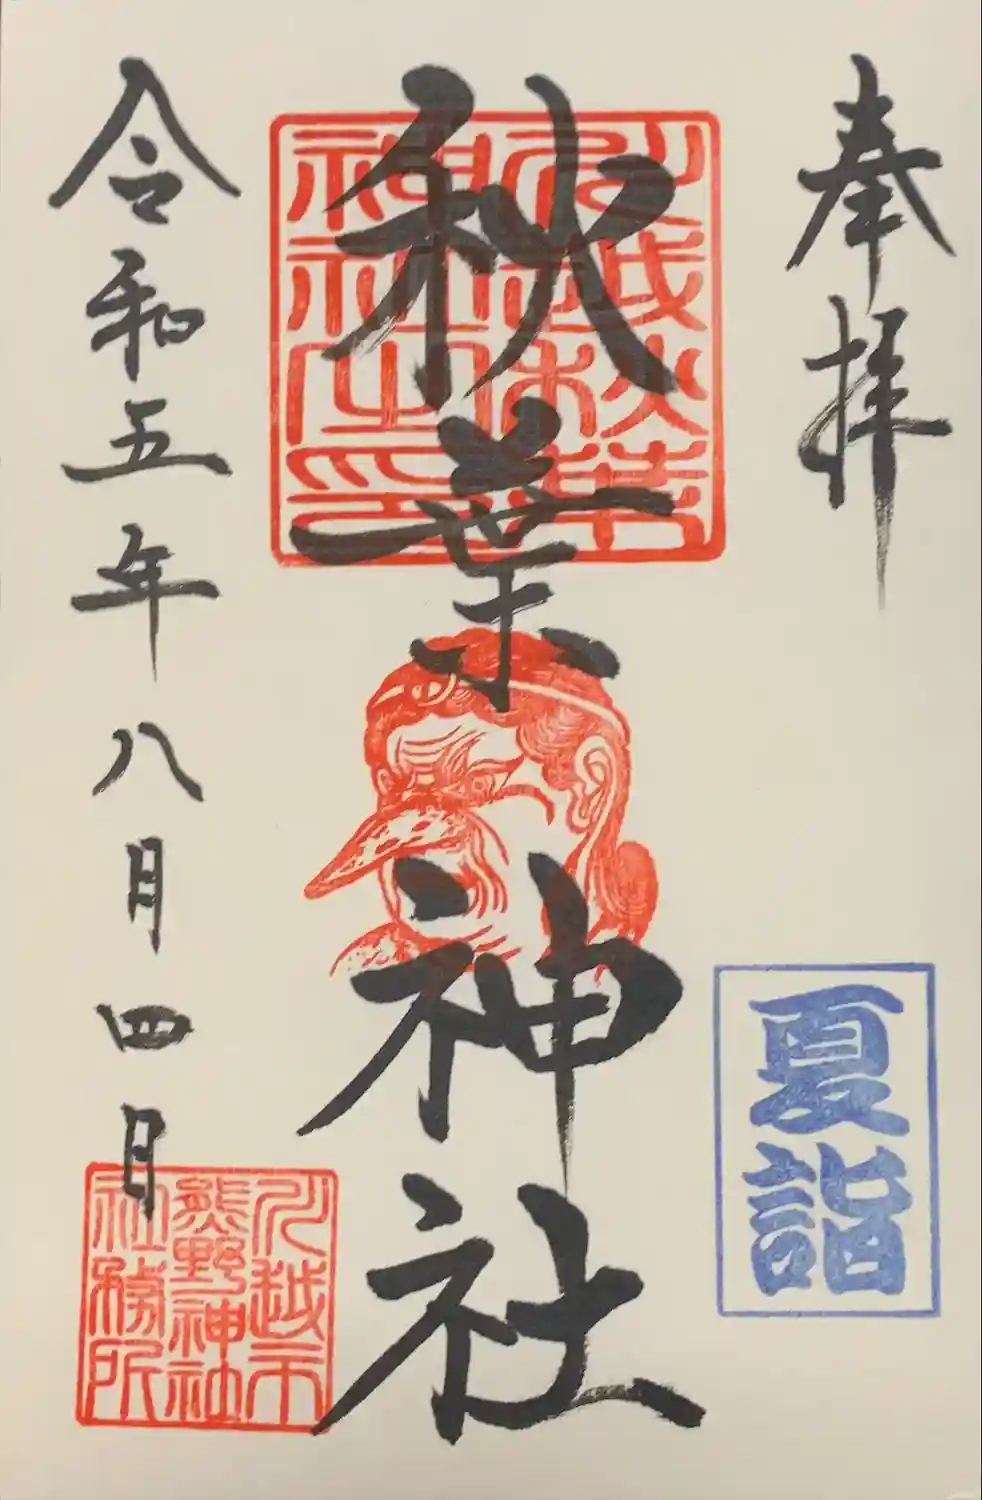 奉拝
夏詣
川越秋葉
神社之印
秋葉神社
令和五年八月四日
川越市
熊野神社
社務所